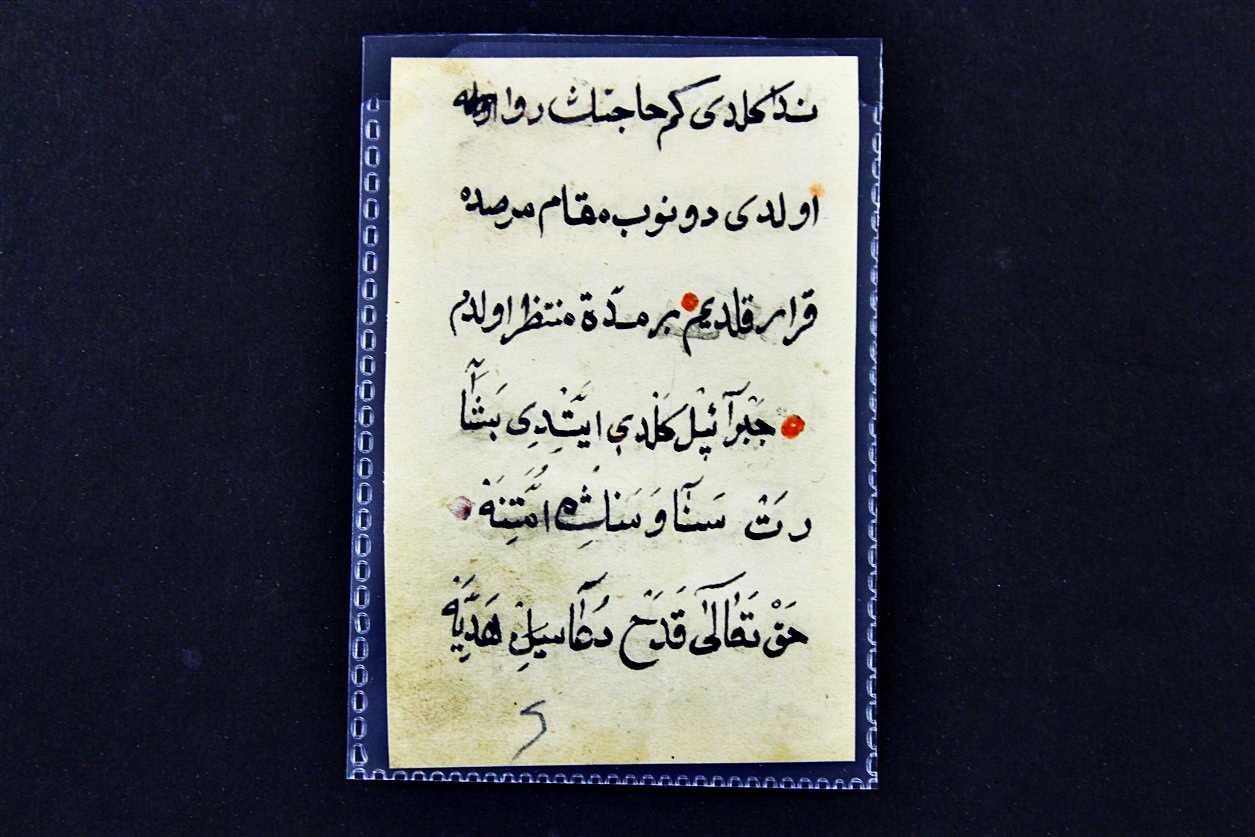 ندا كلدی كم حاجتك روا
اولدی دونوب مقام مرصده
قرار قلدیم بر مدّة منتظر اولدم
جَبْرَآئِیْلْ كَلْدِی اَیَتْدِی بَشَا
رَتْ سَنَآ وَ سَنِڭ اُمَّتِنَهْ
حَقْ تَعَالَی قَدَحْ دُعَاسِیلَهْ هَدِیَّهْ